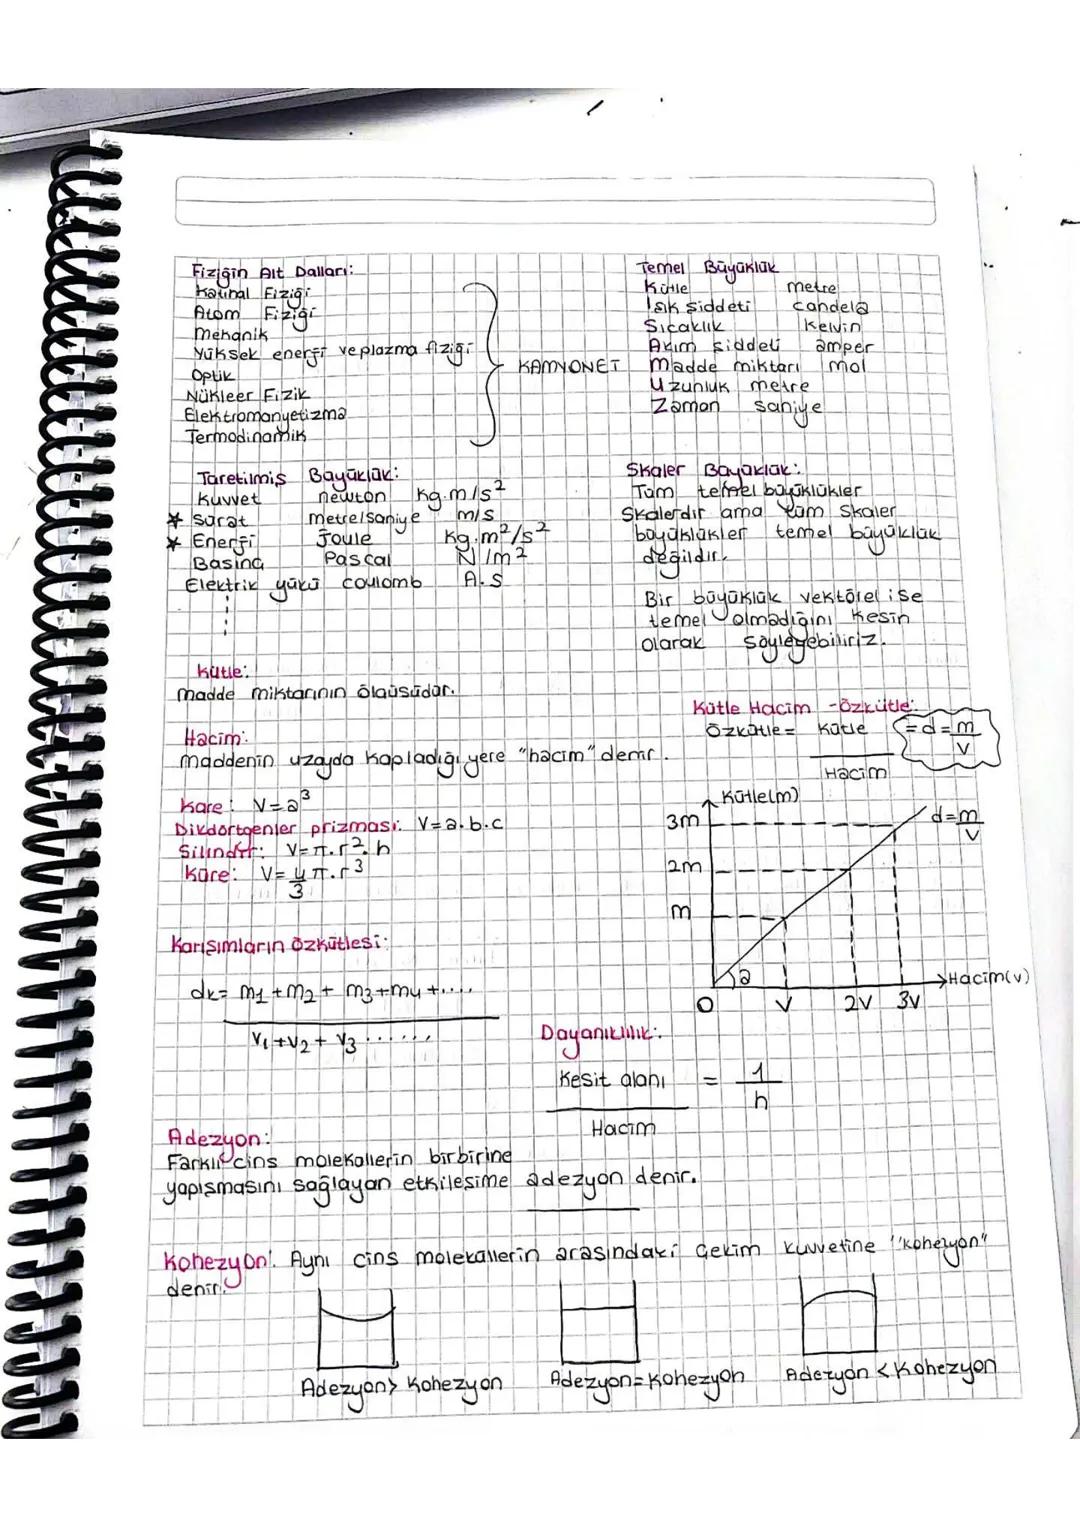 Fiziğin Alt Dalları:
Katıhal Fiziği
Atom Fiziği
Mekanik
Yüksek enerji ve plazma fiziği
Optik
Nükleer Fizik
Elektromanyetizma
Termodinamik
KAMYONET
Temel Büyüklük
Kütle metre
Işık şiddeti candela
Sıcaklık Kelvin
Akım şiddeti amper
Madde miktarı mol
Uzunluk metre
Zaman saniye
Türetilmiş Büyüklük:
Kuvvet newton kg.m/s²
* Sürat metre/saniye m/s
* Enerji Joule kg.m²/s²
Basınç Pascal N/m²
Elektrik yükü coulomb A.s
Skaler Büyüklük:
Tüm temel büyüklükler
Skalerdir ama tüm skaler
büyüklükler temel büyüklük
değildir.
Bir büyüklük vektörel ise
temel olmadığını kesin
olarak söyleyebiliriz.
Kütle:
Madde miktarının ölçüsüdür.
Hacim:
Maddenin uzayda kapladığı yere "hacim" denir.
Kare: V=a³
Dikdörtgenler prizması: V=a.b.c
Silindir: V=π.r².h
Küre: V=4/3 π.r³
Kütle Hacim - Özkütle:
Özkütle = Kütle / Hacim = d = m/V
Kütle(m)
3m
2m
m
d=m/V
a
0 V 2V 3V
Hacim(v)
Karışımların özkütlesi:
dk= m1+m2+ m3+m4+....
V1+V2+ V3 ......
Dayanıklılık:
Kesit alanı / Hacim = 1/h
Adezyon:
Farklı cins moleküllerin birbirine
yapışmasını sağlayan etkileşime adezyon denir.
Kohezyon: Aynı cins moleküllerin arasındaki çekim kuvvetine "kohezyon"
denir.
Adezyon> Kohezyon
Adezyon=Kohezyon
Adezyon <Kohezyon